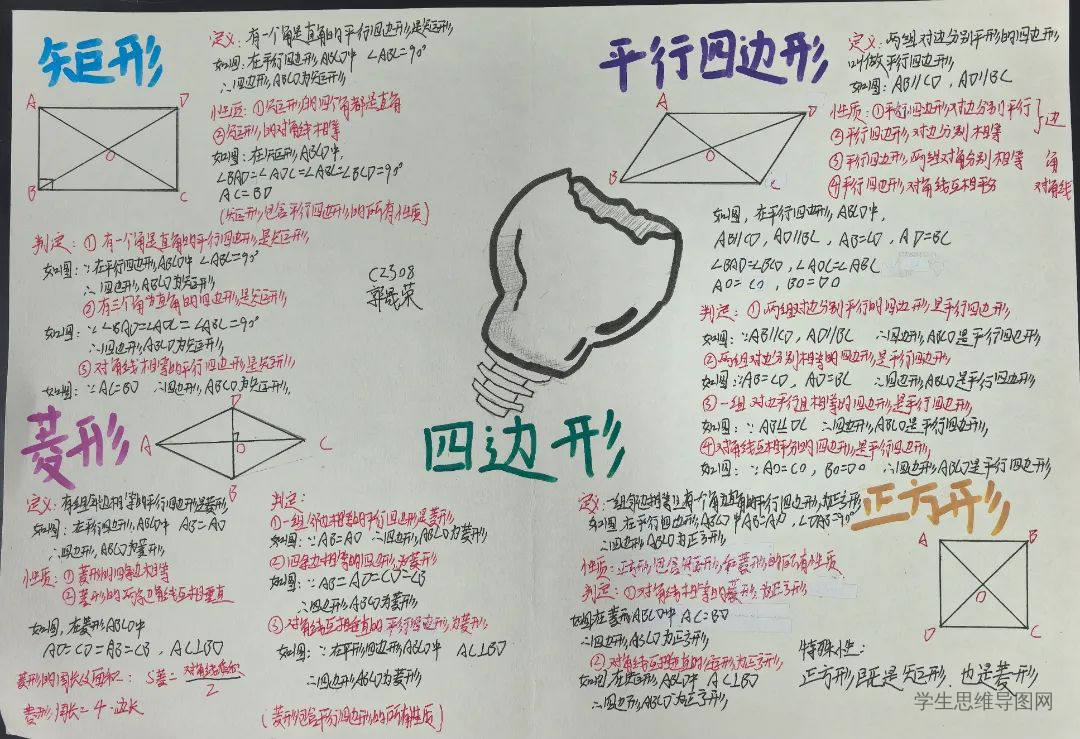 矩形
定义：有一个角是直角的平行四边形是矩形
如图：在平行四边形ABCD中 ∠ABC=90°
∴四边形ABCD为矩形
性质：①矩形的四个角都是直角
②矩形的对角线相等
如图：在矩形ABCD中，
∠BAD=∠ADC=∠ABC=∠BCD=90°
AC=BD
(矩形包含平行四边形的所有性质)
A
D
O
B
C
判定：①有一个角是直角的平行四边形是矩形
如图：∵在平行四边形ABCD中 ∠ABC=90°
∴四边形ABCD为矩形
②有三个角为直角的四边形是矩形
如图：∵∠BAD=∠ADC=∠ABC=90°
∴四边形ABCD为矩形
③对角线相等的平行四边形是矩形
如图：∵AC=BD ∴四边形ABCD为矩形
C2308
郭晟荣
平行四边形
定义：两组对边分别平行的四边形
叫做平行四边形
如图：AB//CD，AD//BC
A
D
O
B
C
性质：①平行四边形对边分别平行
②平行四边形对边分别相等
边
③平行四边形两组对角分别相等 角
④平行四边形对角线互相平分 对角线
如图，在平行四边形ABCD中，
AB//CD，AD//BC，AB=CD，AD=BC
∠BAD=∠BCD，∠ADC=∠ABC
AO=CO，BO=DO
判定：①两组对边分别平行的四边形是平行四边形
如图：∵AB//CD，AD//BC ∴四边形ABCD是平行四边形
②两组对边分别相等的四边形是平行四边形
如图：∵AB=CD，AD=BC ∴四边形ABCD是平行四边形
③一组对边平行且相等的四边形是平行四边形
如图：∵AB DC ∴四边形ABCD是平行四边形
④对角线互相平分的四边形是平行四边形
如图：∵AO=CO，BO=DO ∴四边形ABCD是平行四边形
四边形
菱形
D
A
O
C
B
定义：有组邻边相等的平行四边形是菱形
如图：在平行四边形ABCD中 AB=AD
∴四边形ABCD为菱形
性质：①菱形的四条边相等
②菱形的两条对角线互相垂直
如图，在菱形ABCD中
AD=CD=AB=CB，AC⊥BD
菱形的周长及面积：S菱=对角线乘积/2
菱形周长=4·边长
判定：
①一组邻边相等的平行四边形是菱形
如图：∵AB=AD ∴四边形ABCD为菱形
②四条边相等的四边形为菱形
如图：∵AB=AD=CD=CB
∴四边形ABCD为菱形
③对角线互相垂直的平行四边形为菱形
如图：∵在平行四边形ABCD中 AC⊥BD
∴四边形ABCD为菱形
(菱形包含平行四边形的所有性质)
正方形
定义：一组邻边相等且有一个角为直角的平行四边形为正方形
如图 在平行四边形ABCD中AB=AD，∠DAB=90°
∴四边形ABCD为正方形
性质：正方形包含矩形和菱形的所有性质
判定：①对角线相等的菱形为正方形
如图在菱形ABCD中 AC=BD
∴四边形ABCD为正方形
②对角线互相垂直的矩形为正方形
如图在矩形ABCD中 AC⊥BD
∴四边形ABCD为正方形
A
B
O
D
C
特殊性：
正方形既是矩形，也是菱形
学生思维导图网